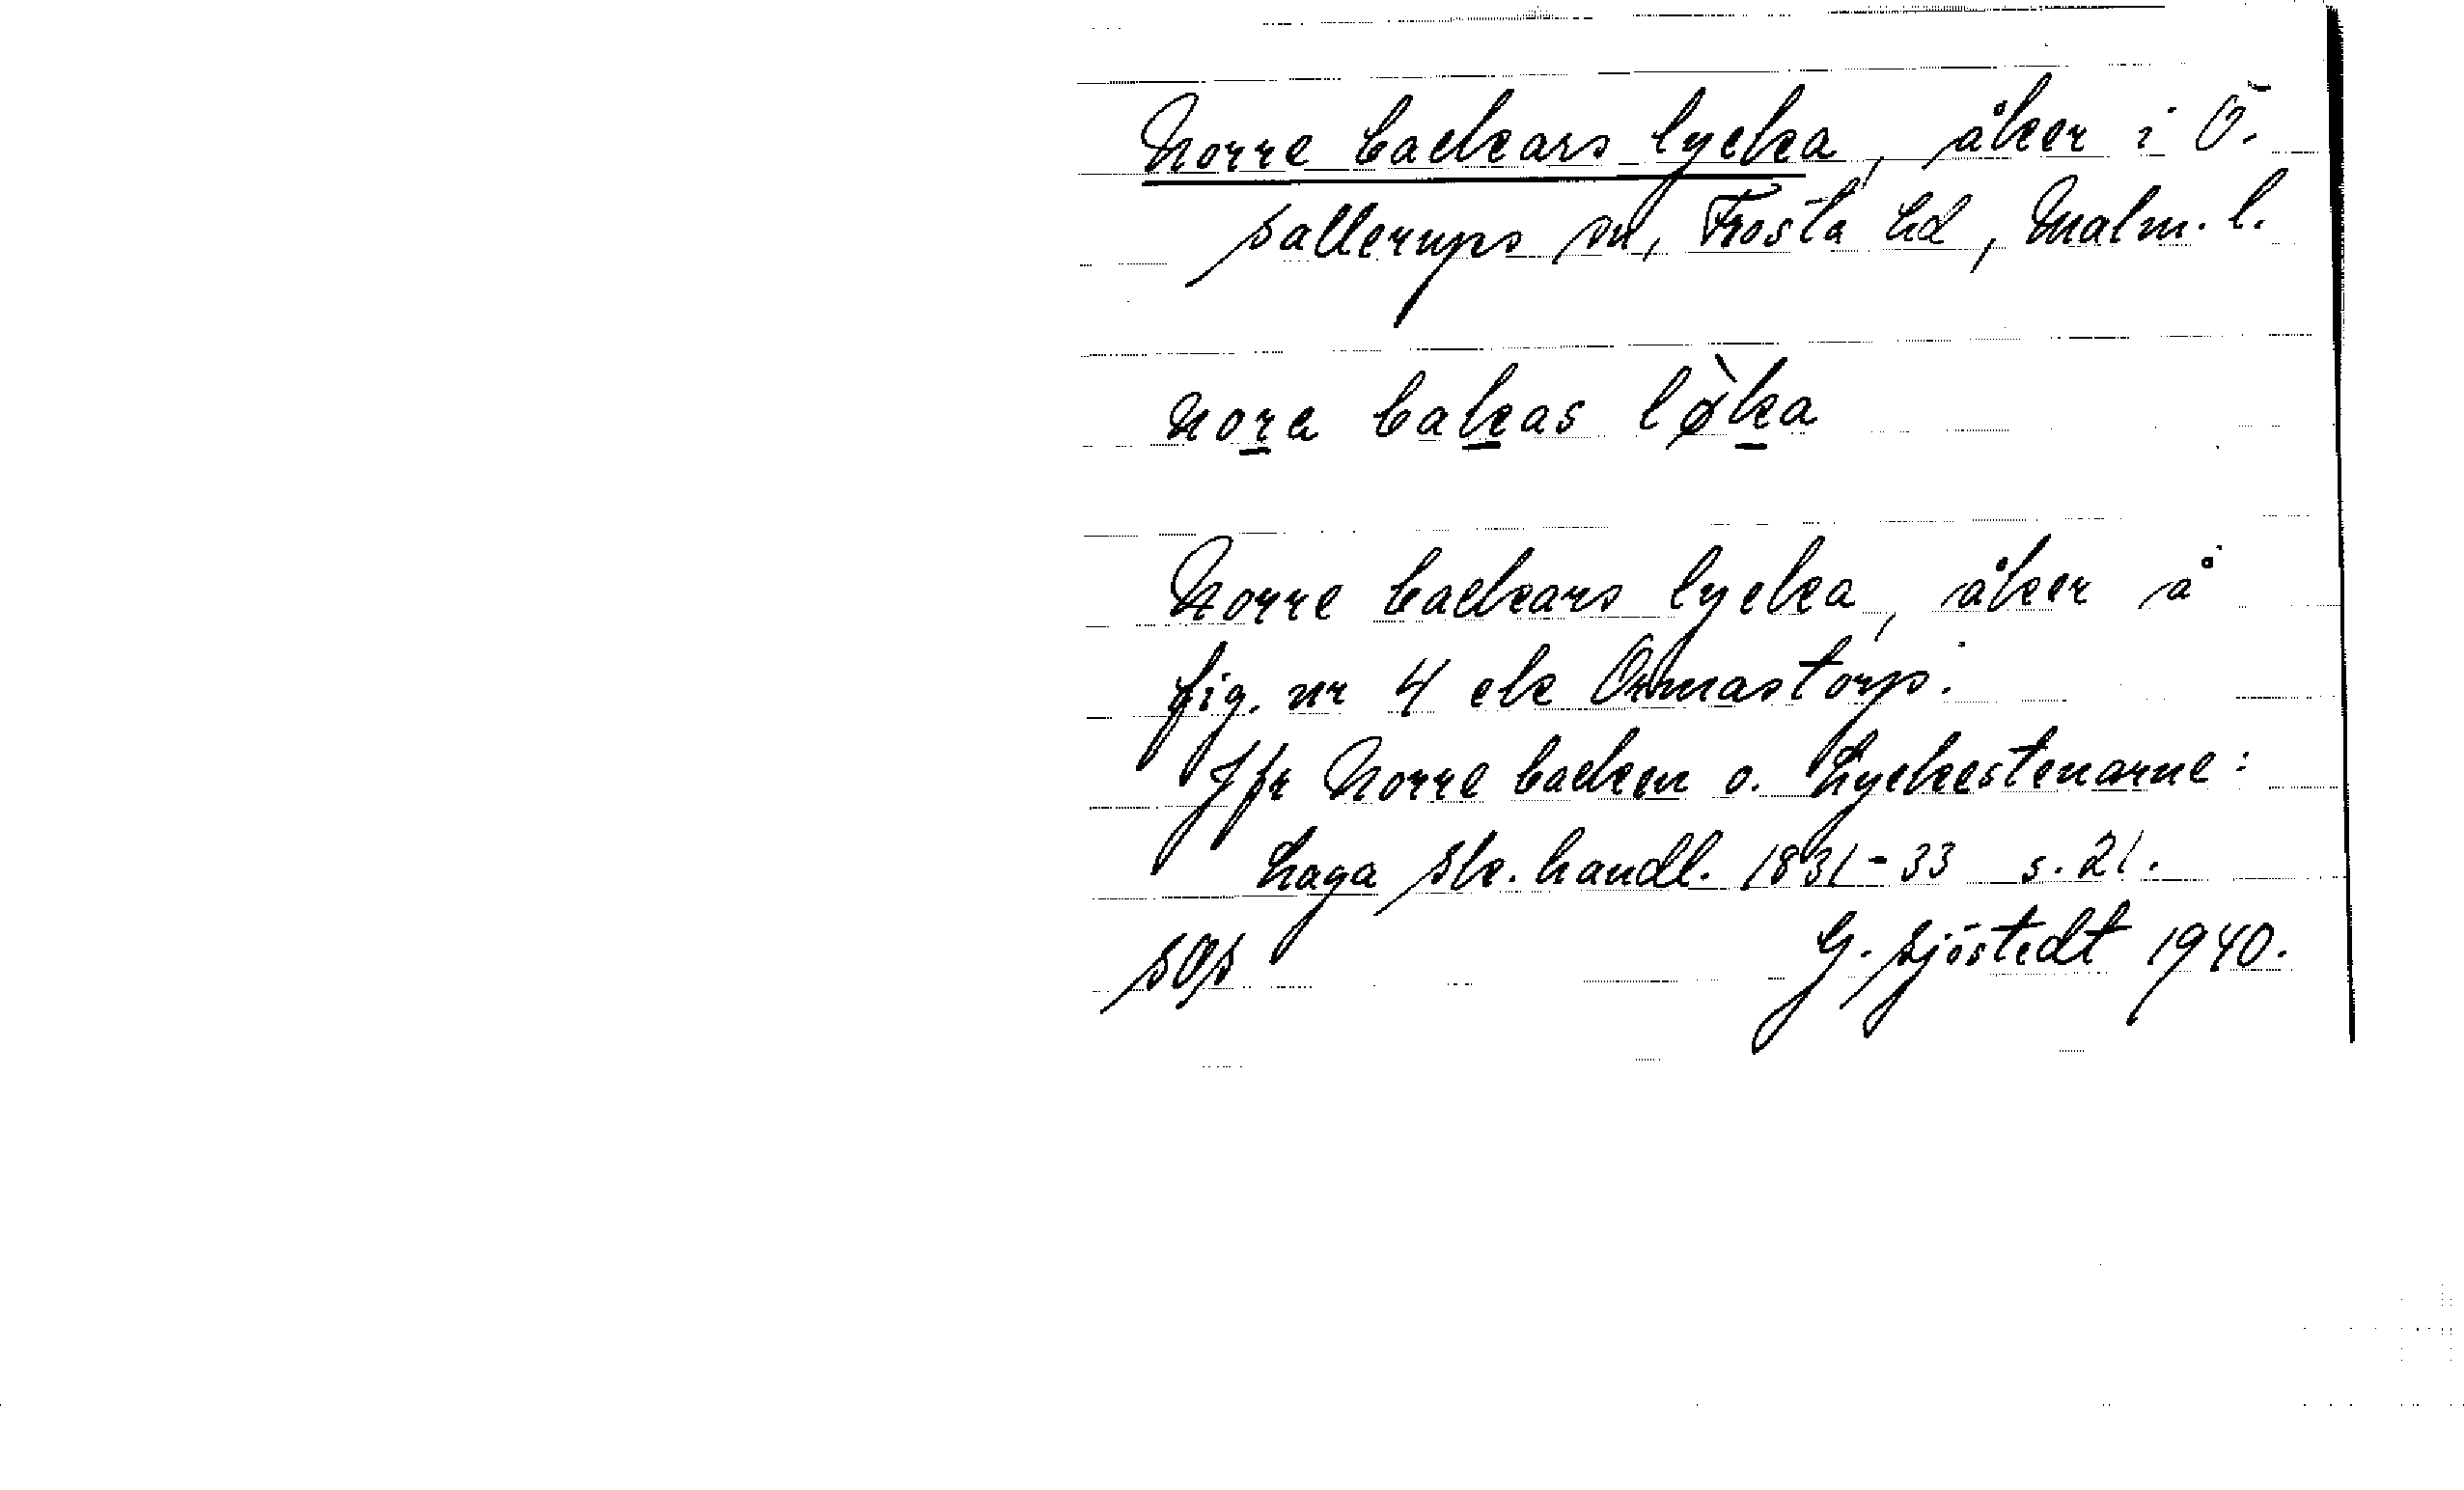 Norre backars lycka, åker i Ö.
Sallerups sn, Frosta hd, Malm. l.
nora bakas løka
Norre backars lycka, åker å
fig. nr 4 ek Ormastorp.
Jfr Norre backen o. Lyckestenarne:
Laga Sk. handl. 1831-33 s. 21.
SOS
G. Sjöstedt 1940.